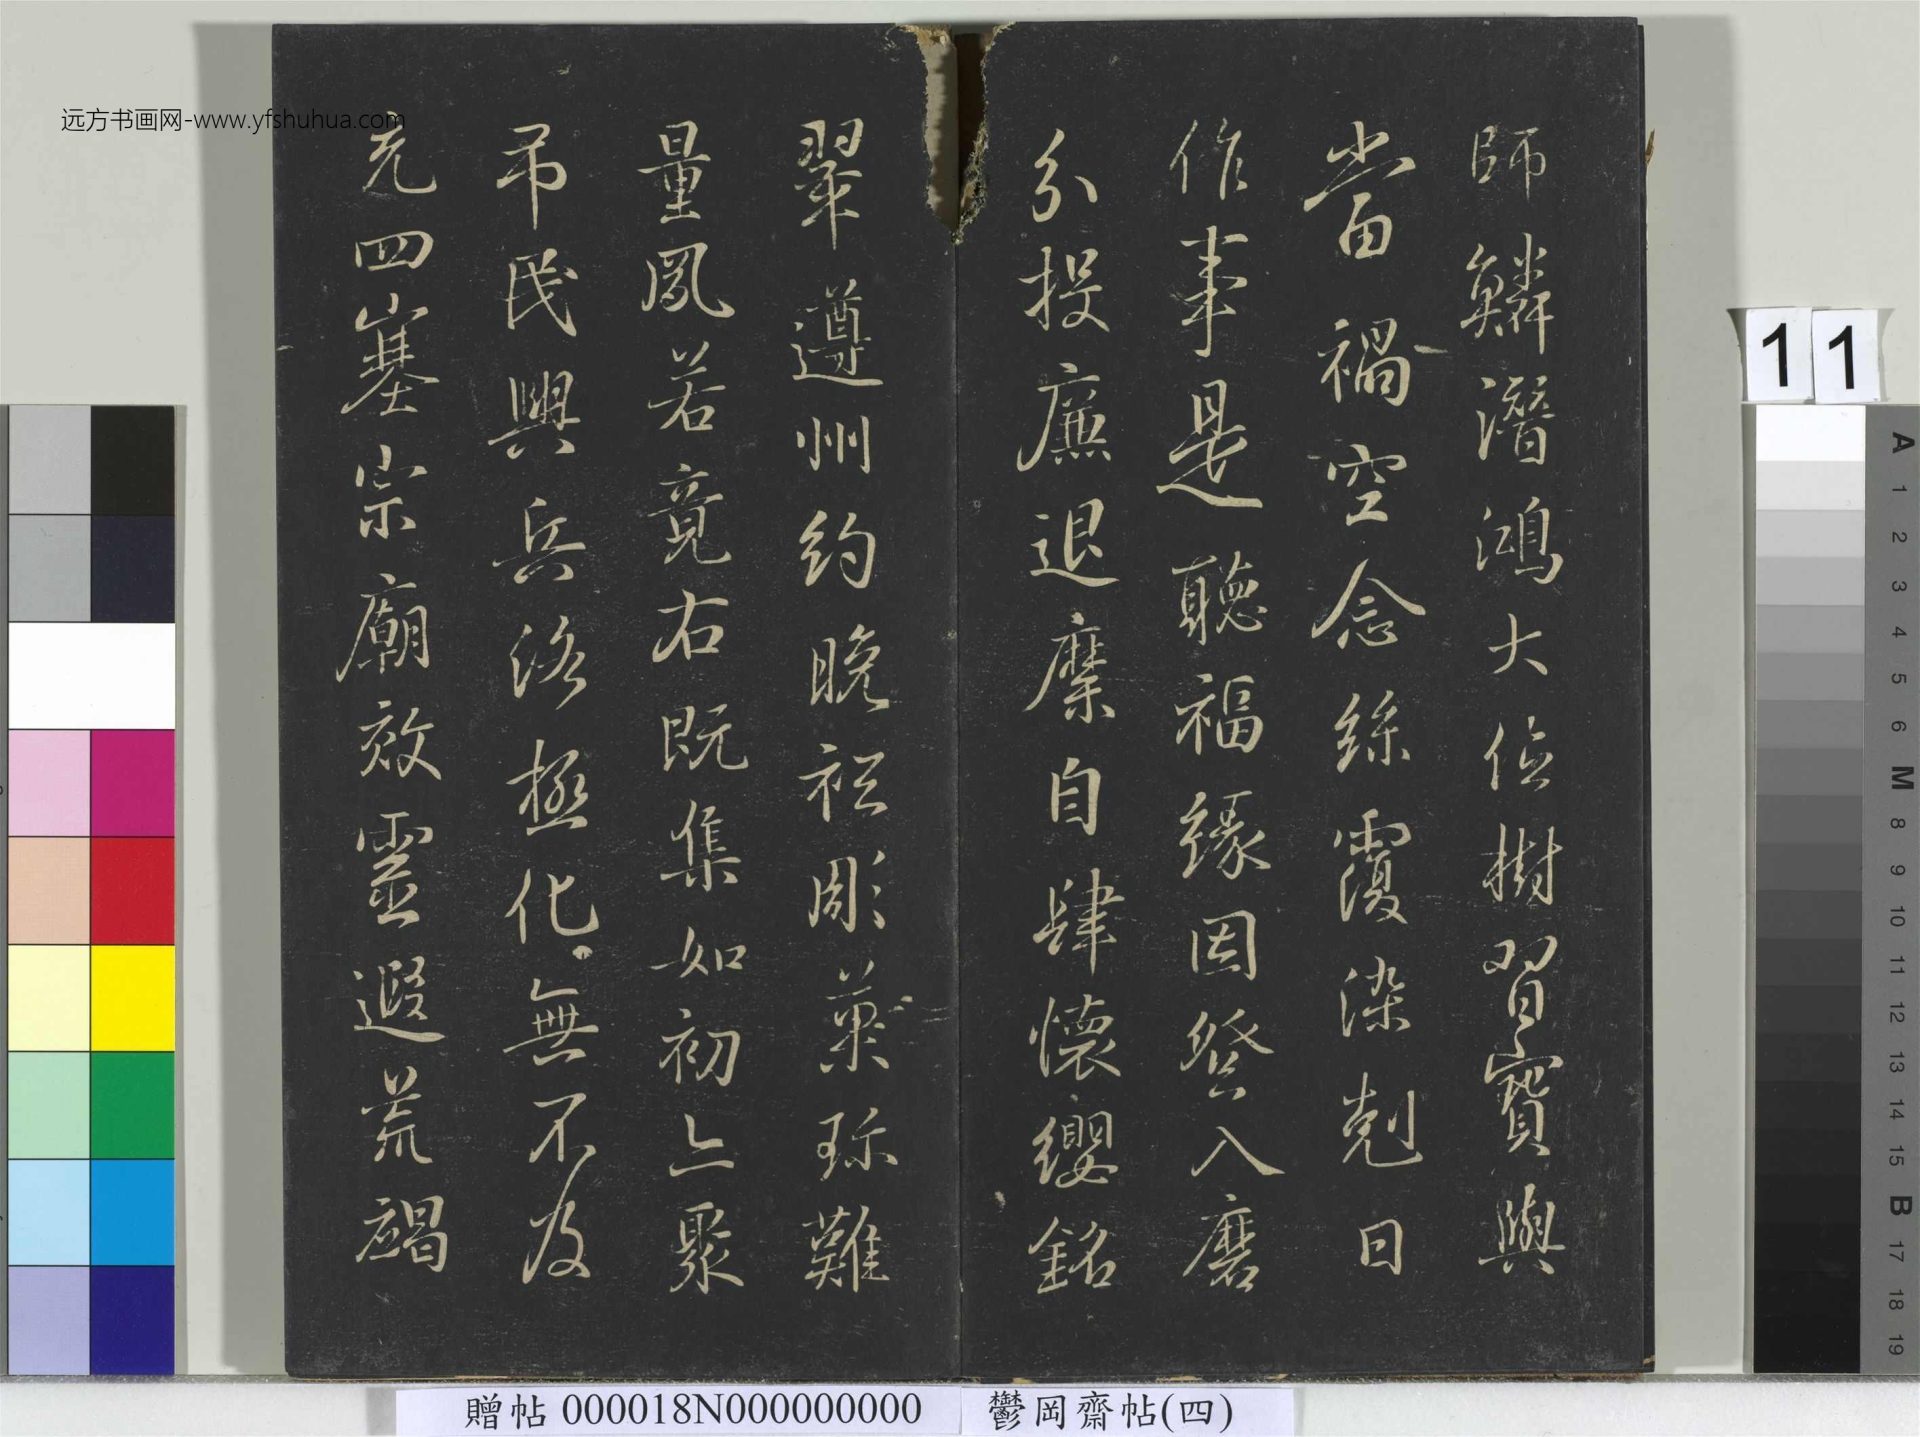 師鱗潛鴻大位樹習寶與
當禍空念絲覆染剋日
作事是聽福緣因登入磨
分投廉退縻自肆懷纓銘
翠遵州約晚祗彫菓珎難
量鳳若竟右既集如初上聚
吊民興兵洛極化無不及
充四塞宗廟效靈遐荒
远方书画网-www.yfshuhua.com
11
A 1 2 3 4 5 6 M 8 9 10 11 12 13 14 15 B 17 18 19
贈帖 000018N000000000
鬱岡齋帖(四)